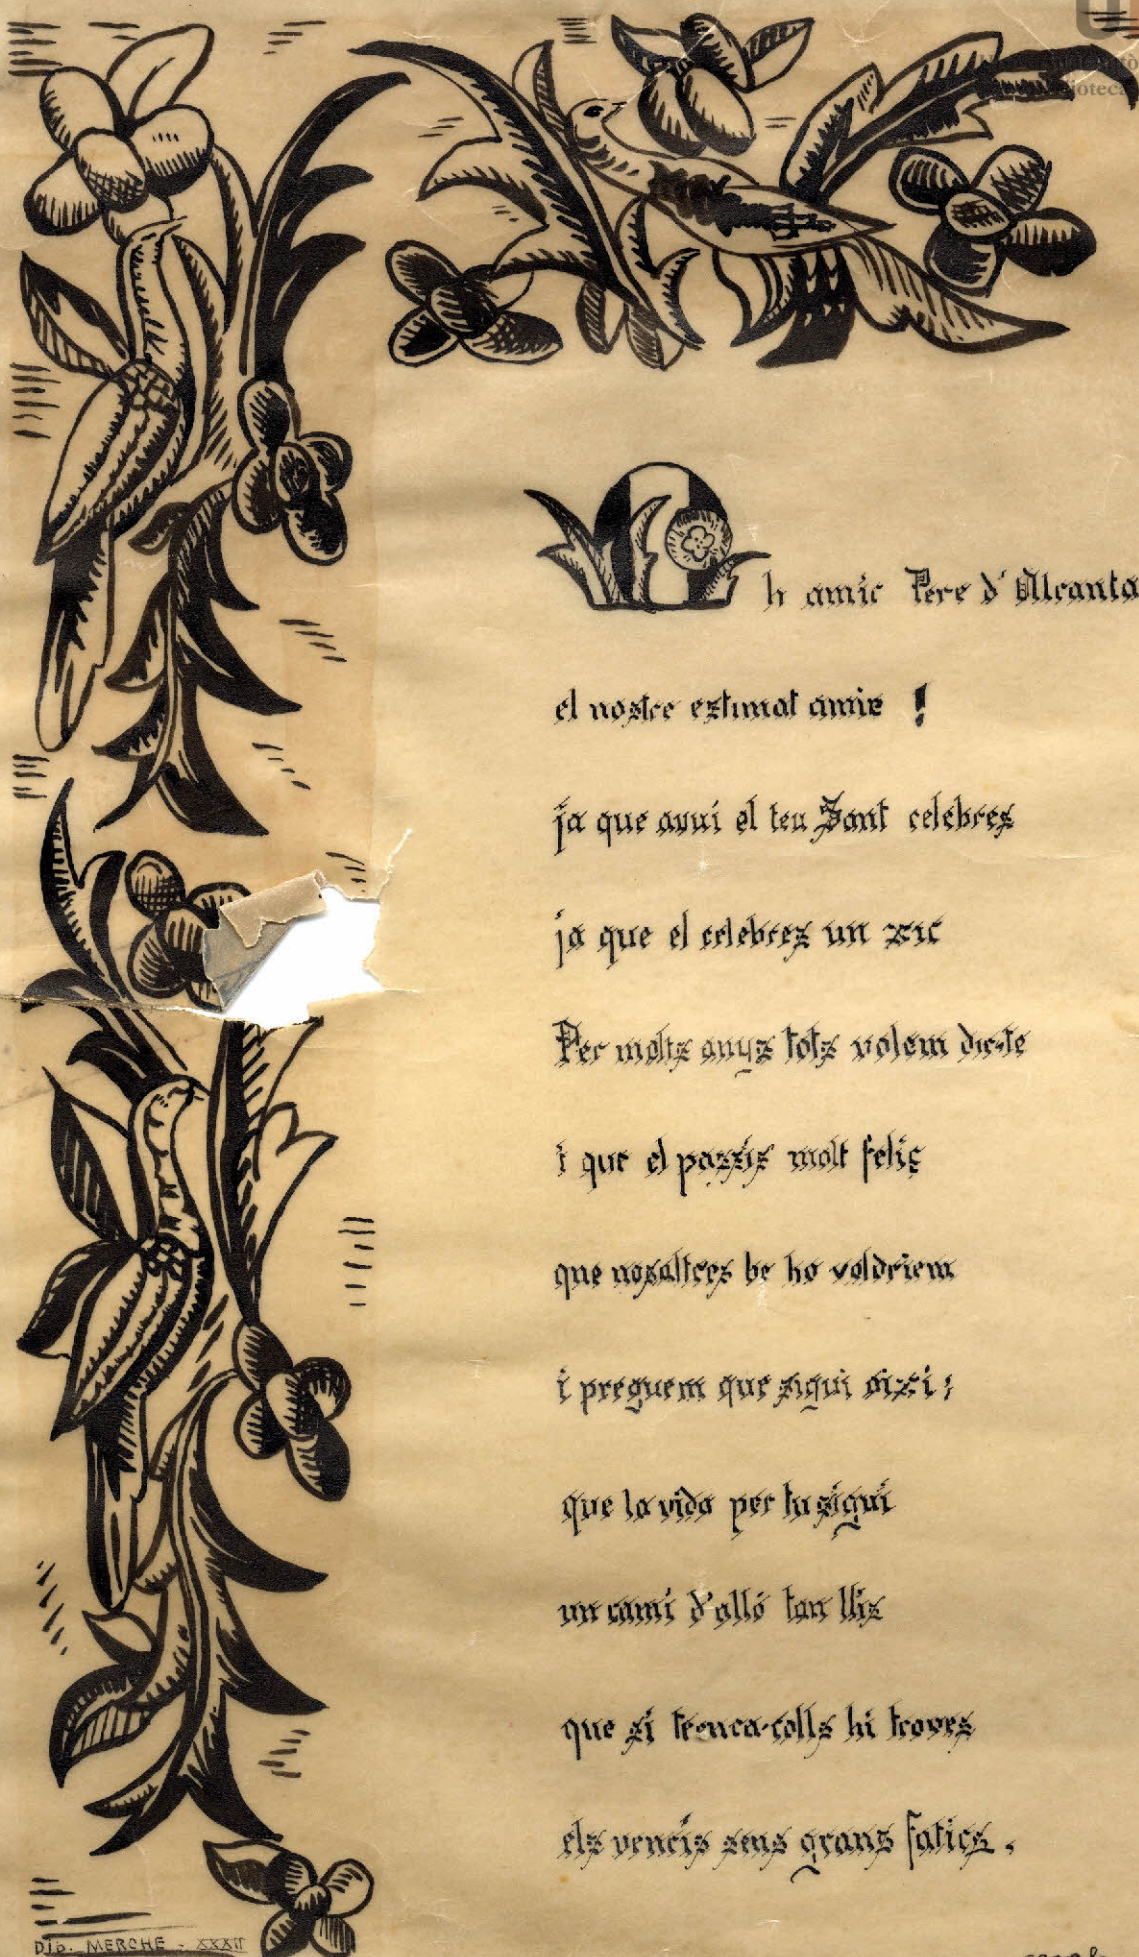 Oh amic Pere d'Alcanta
el nostre estimat amic !
ja que avui el teu Sant celebres
ja que el celebres un xic
Per molts anys tots volem dir-te
i que el passis molt feliç
que nosaltres be ho voldriem
i preguem que sigui aixi;
que la vida per tu sigui
un cami d'alló tan llis
que si trenca-colls hi troves
els vencis sens grans fatics.
DIB. MERCHE - XXXII